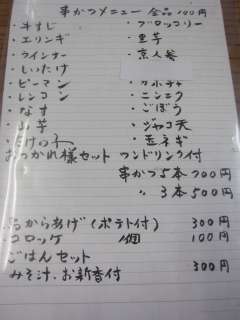 串かつメニュー 全品100円
・牛すじ ・ブロッコリー
・エリンギ ・里芋
・ウインナー ・京人参
・しいたけ
・ピーマン ・カボチャ
・レンコン ・ニンニク
・なす ・ごぼう
・山芋 ・ジャコ天
・たけの子 ・玉ネギ
おつかれ様セット ワンドリンク付
串かつ5本 700円
〃 3本 500円
鳥からあげ(ポテト付) 300円
コロッケ 1個 100円
ごはんセット
みそ汁、お新香付 300円